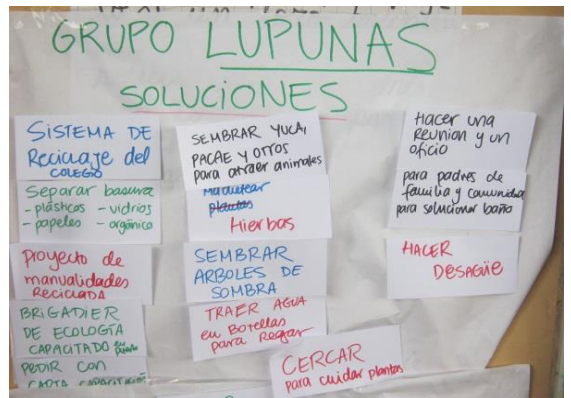 GRUPO LUPUNAS
SOLUCIONES
SISTEMA DE
Reciclaje del
COLEGIO
Separar basura
- plásticos - vidrios
- papeles - orgánico
Proyecto de
manualidades
RECICLADA
BRIGADIER
DE ECOLOGÍA
CAPACITADO en
PEDIR CON
CARTA CAPACITACIÓN
SEMBRAR YUCA,
PACAE Y OTROS
para atraer animales
plantas
Hierbas
SEMBRAR
ARBOLES DE
SOMBRA
TRAER AGUA
en Botellas
para Regar
CERCAR
para cuidar plantas
Hacer una
Reunion y un
oficio
para padres de
familia y comunidad
para solucionar baño
HACER
DESAGÜE